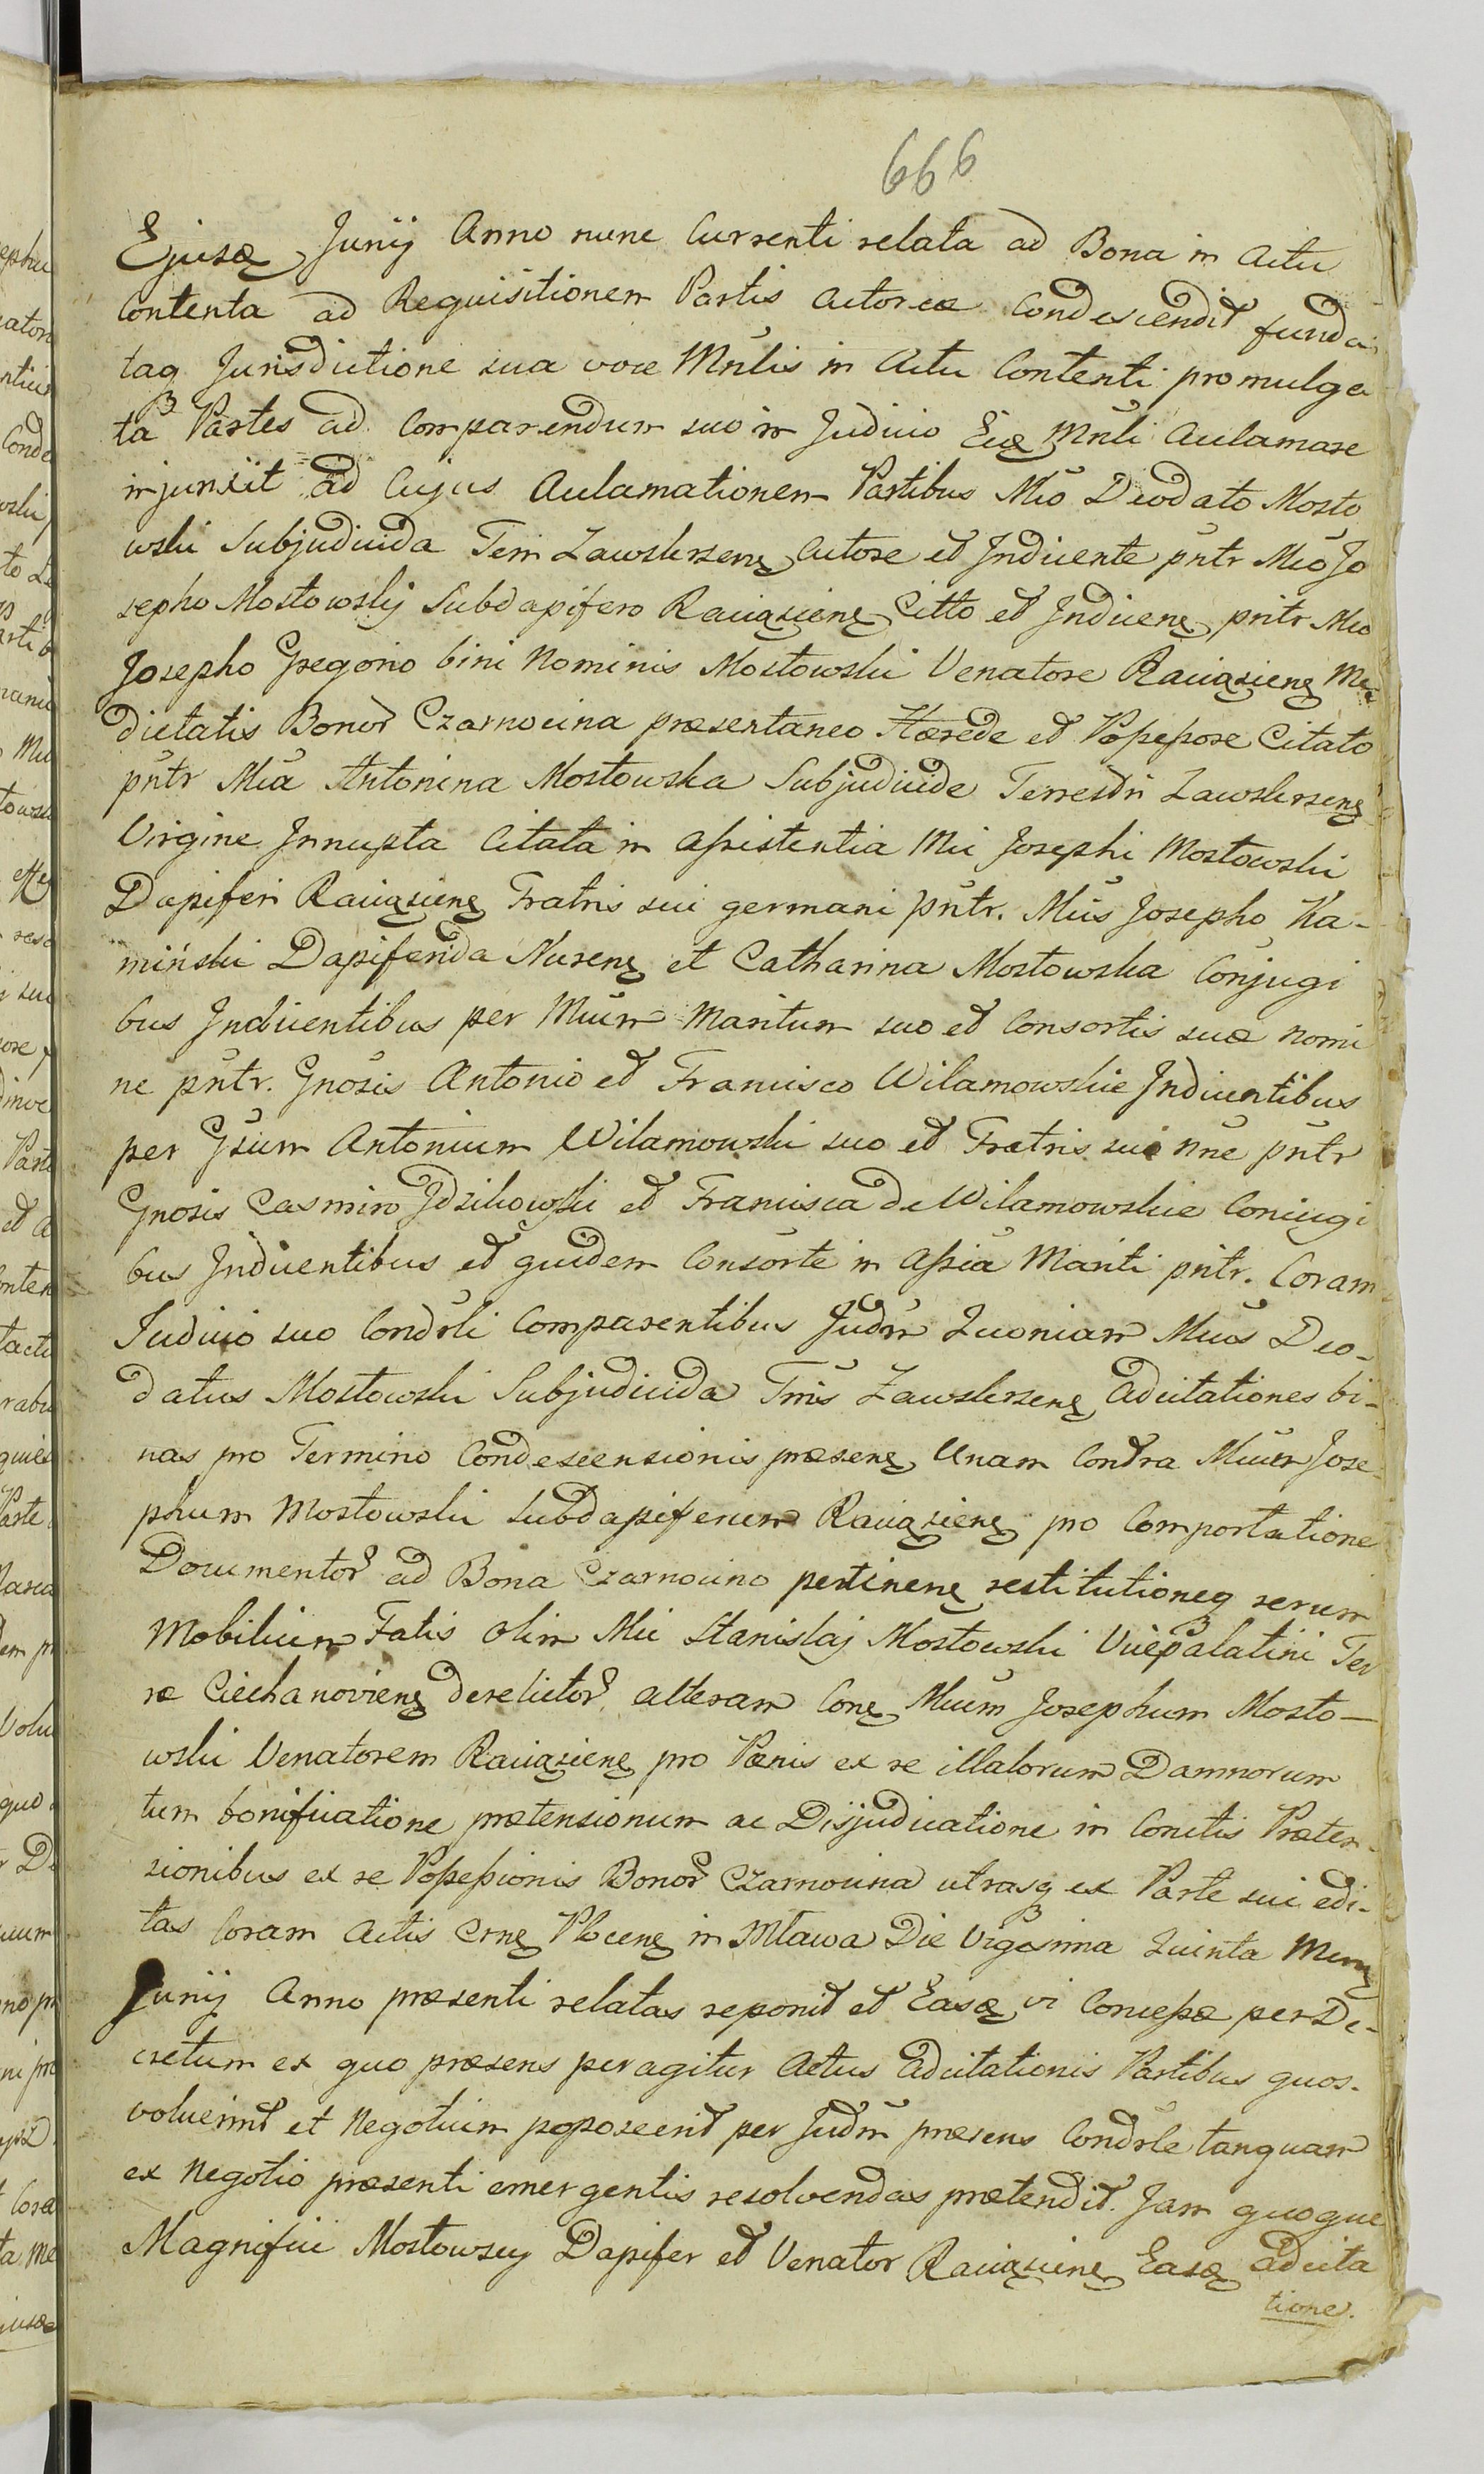 666
Ejusdę Junij Anno nunc Currenti relata ad Bona in Actu
Contenta ad Requisitionem Partis Actoreæ Condescendit funda
taq Jurisdictione sua voce Mnlis in Actu Contenti promulga
ta Partes ad Comparendum suo in Judicio Eidę Mnli Aclamare
injunxit ad Cujus Aclamationem Partibus Mco Deodato Mosto
wski Subjudicida Terr Zawskrzenę Actore et Inducente pntr Mco Jo
sepho Mostowskij Subdapifero Raciązienę Citto et Inducenę pntr Mco
Josepho Gregorio bini Nominis Mostowski Venatore Raciązienę Me
dietatis Bonor Czarnocina præsentaneo Hærede et Possessore Citato
pntr Mca Antonina Mostowska Subjudicide Terrestri Zawskrzenę
Virgine Innupta Citata in Assistentia Mci Josephi Mostowski
Dapiferi Raciązienę Fratris sui germani pntr. Mcis Josepho Ka-
miński Dapiferida Nurenę et Catharina Mostowska Conjugi
bus Inducentibus per Mcum Maritum suo et Consortis suæ nomi
ne pntr. Gnosis Antonio et Francisco Wilamowskie Inducentibus
per Gsum Antonium Wilamowski suo et Fratris sui nne pntr
Gnosis Casmiro Jdzikowski et Francisca de Wilamowskie Coniugi
bus Inducentibus et quidem Consorte in Assia Mariti pntr. Coram
Judicio suo Condrli Comparentibus Judm Quoniam Mcus Deo-
datus Mostowski Subjudicida Trris Zawskrzenę Adcitationes bi-
nas pro Termino Condescensionis præsenę Unam Contra Mcum Jose
phum Mostowski Subdapiferum Raciązienę pro Comportatione
Documentor ad Bona Czarnocino pertinenę restitutioneq rerum
Mobilium Fatis olim Mci Stanislaj Mostowski Vicepalatini Ter
ræ Ciechanovienę derelictor alteram Conę Mcum Josephum Mosto-
wski Venatorem Raciązienę pro Pœnis ex re illatorum Damnorum
tum bonificatione prætensionum ac Disjudicatione in Conctis Præten-
sionibus ex re Possessionis Bonor Czarnocina utrasq ex Parte sui edi-
tas Coram Actis Crnę Plocenę in Mława Die Vigesima Quinta Menę
Junij Anno præsenti relatas reponit et Easdę vi Concessæ per De-
cretum ex quo præsens peragitur Actus Adcitationis Partibus quos-
voluerint et Negotium poposcerit per Judm præsens Condrle tanquam
ex Negotio præsenti emergentis resolvendas prætendit. Jam quoque
Magnifici Mostowscy Dapifer et Venator Raciązienę Easdę Adcita
tione.